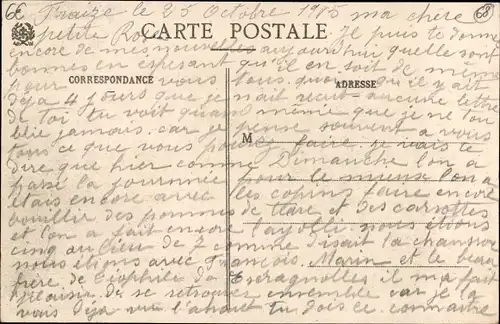 Fraize le 25 Octobre 1915 ma chère
petite Ro
CARTE POSTALE
je puis te donner
encore de mes nouvelles aujourd'hui quelle sont
bonnes en espérant qu'il en soit de même
CORRESPONDANCE
ADRESSE
pour vous tous quoi qu'il y ait
déja 4 jours que je nait recut aucune lettre
de toi tu voit quand même que je ne t'ou
blie jamais car je pense souvent a vous
M
tous ce que vous pouvez faire je vais te
dire que hier comme Dimanche l'on a
passé la journée pour le mieux l'on a
étais encore avec les copins faire encore
bouillir des pommes de tlare et des carottes
et l'on a fait encore l'ayolli nous étions
cinq au lieu de 2 comme disait la chanson
nous étions avec François Marin et le beau
frère de Ciophile d'Escragnolles il ma fait
plaisir de se retrouver ensemble car je l'a
vous déja vu l'ahout tu dois le connaitre